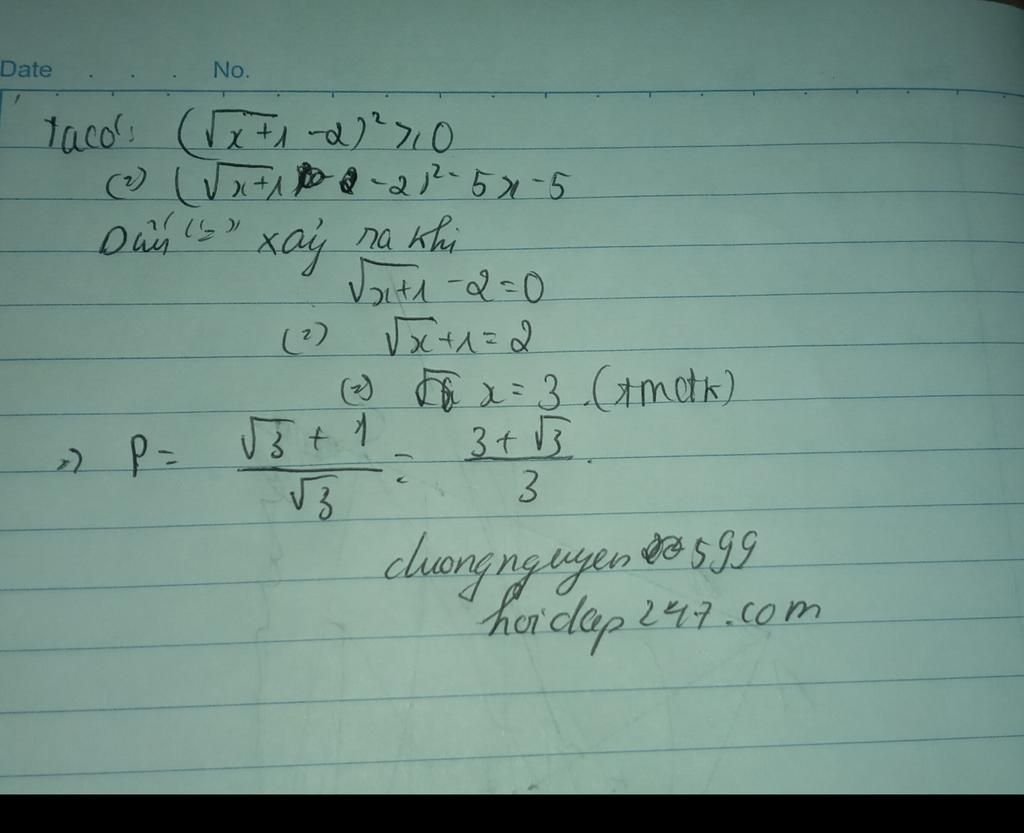 Date . . . No.
Ta có: (√x+1 -2)² ≥ 0
(=) (√x+1 -2)² - 5x - 5
Dấu "=" xảy ra khi
√x+1 -2 = 0
(=) √x+1 = 2
(=) x = 3 (tmđk)
=> P = (√3 + 1)/√3 = (3 + √3)/3.
chuongnguyen 599
hoidap247.com